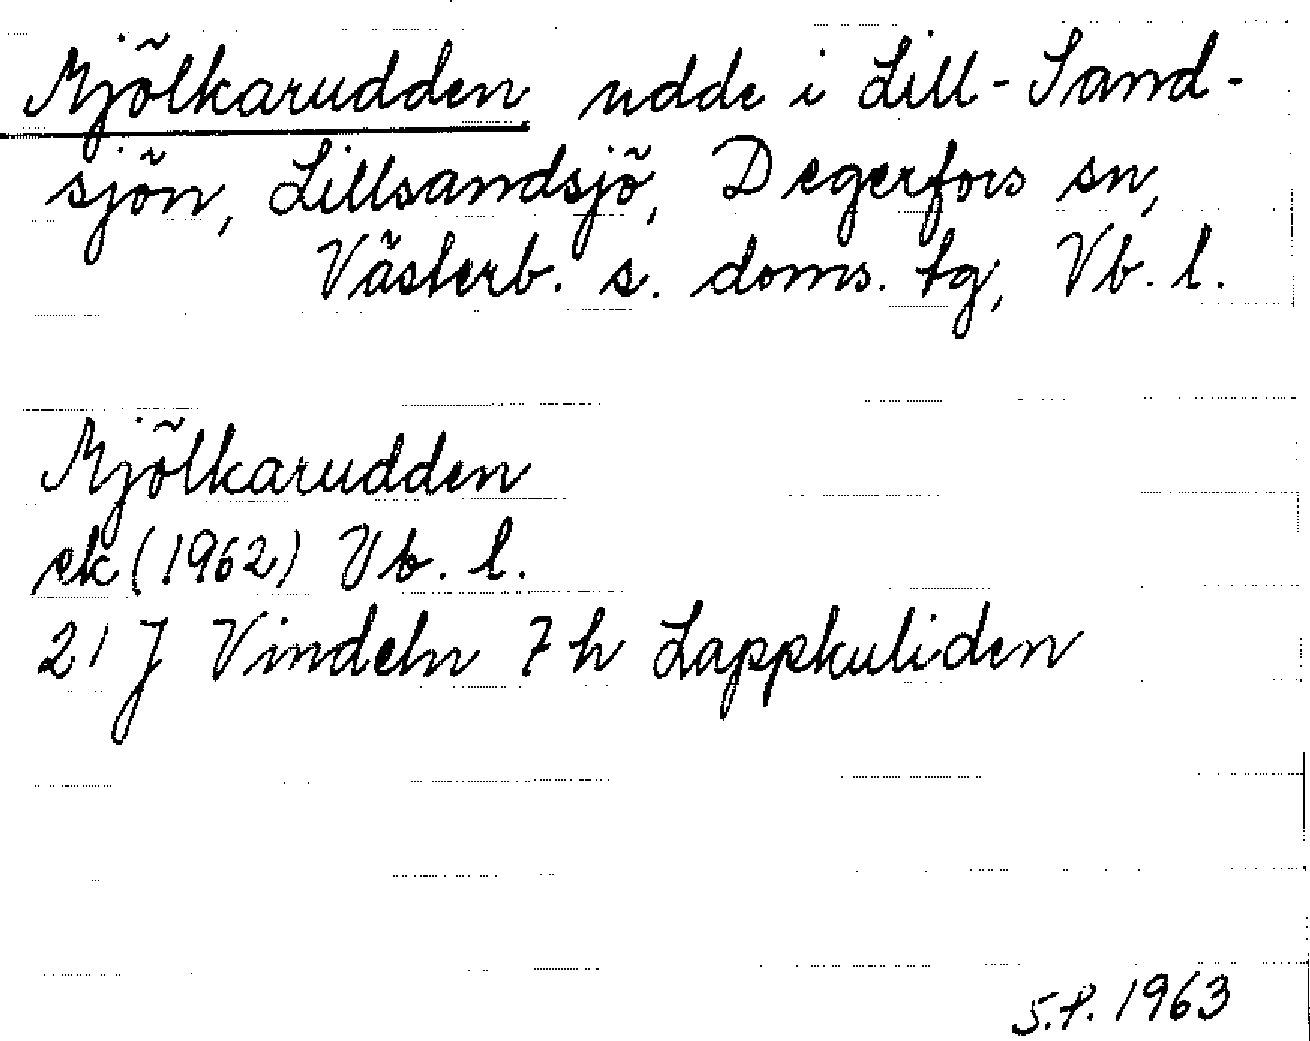 Mjölkarudden udde i Lill-Sand-
sjön, Lillsandsjö, Degerfors sn,
Västerb. s. doms. tg, Vb. l.
Mjölkarudden
ek (1962) Vb. l.
21 J Vindeln 7 h Lappkuliden
S.P. 1963